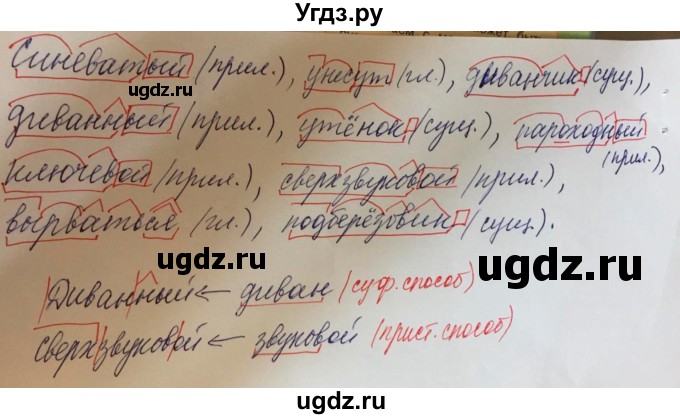 Угдз.ру
Синеватый (прил.), унесут (гл.), диванчик (сущ.),
ugdz.ru
ugdz.ru
диванный (прил.), утёнок (сущ.), пароходный (прил.),
ключевой (прил.), сверхзвуковой (прил.),
вырваться (гл.), подберёзовик (сущ.).
ugdz.ru
ugdz.ru
Диванный ← диван (суф. способ)
сверхзвуковой ← звуковой (прист. способ)
ugdz.ru
ugdz.ru